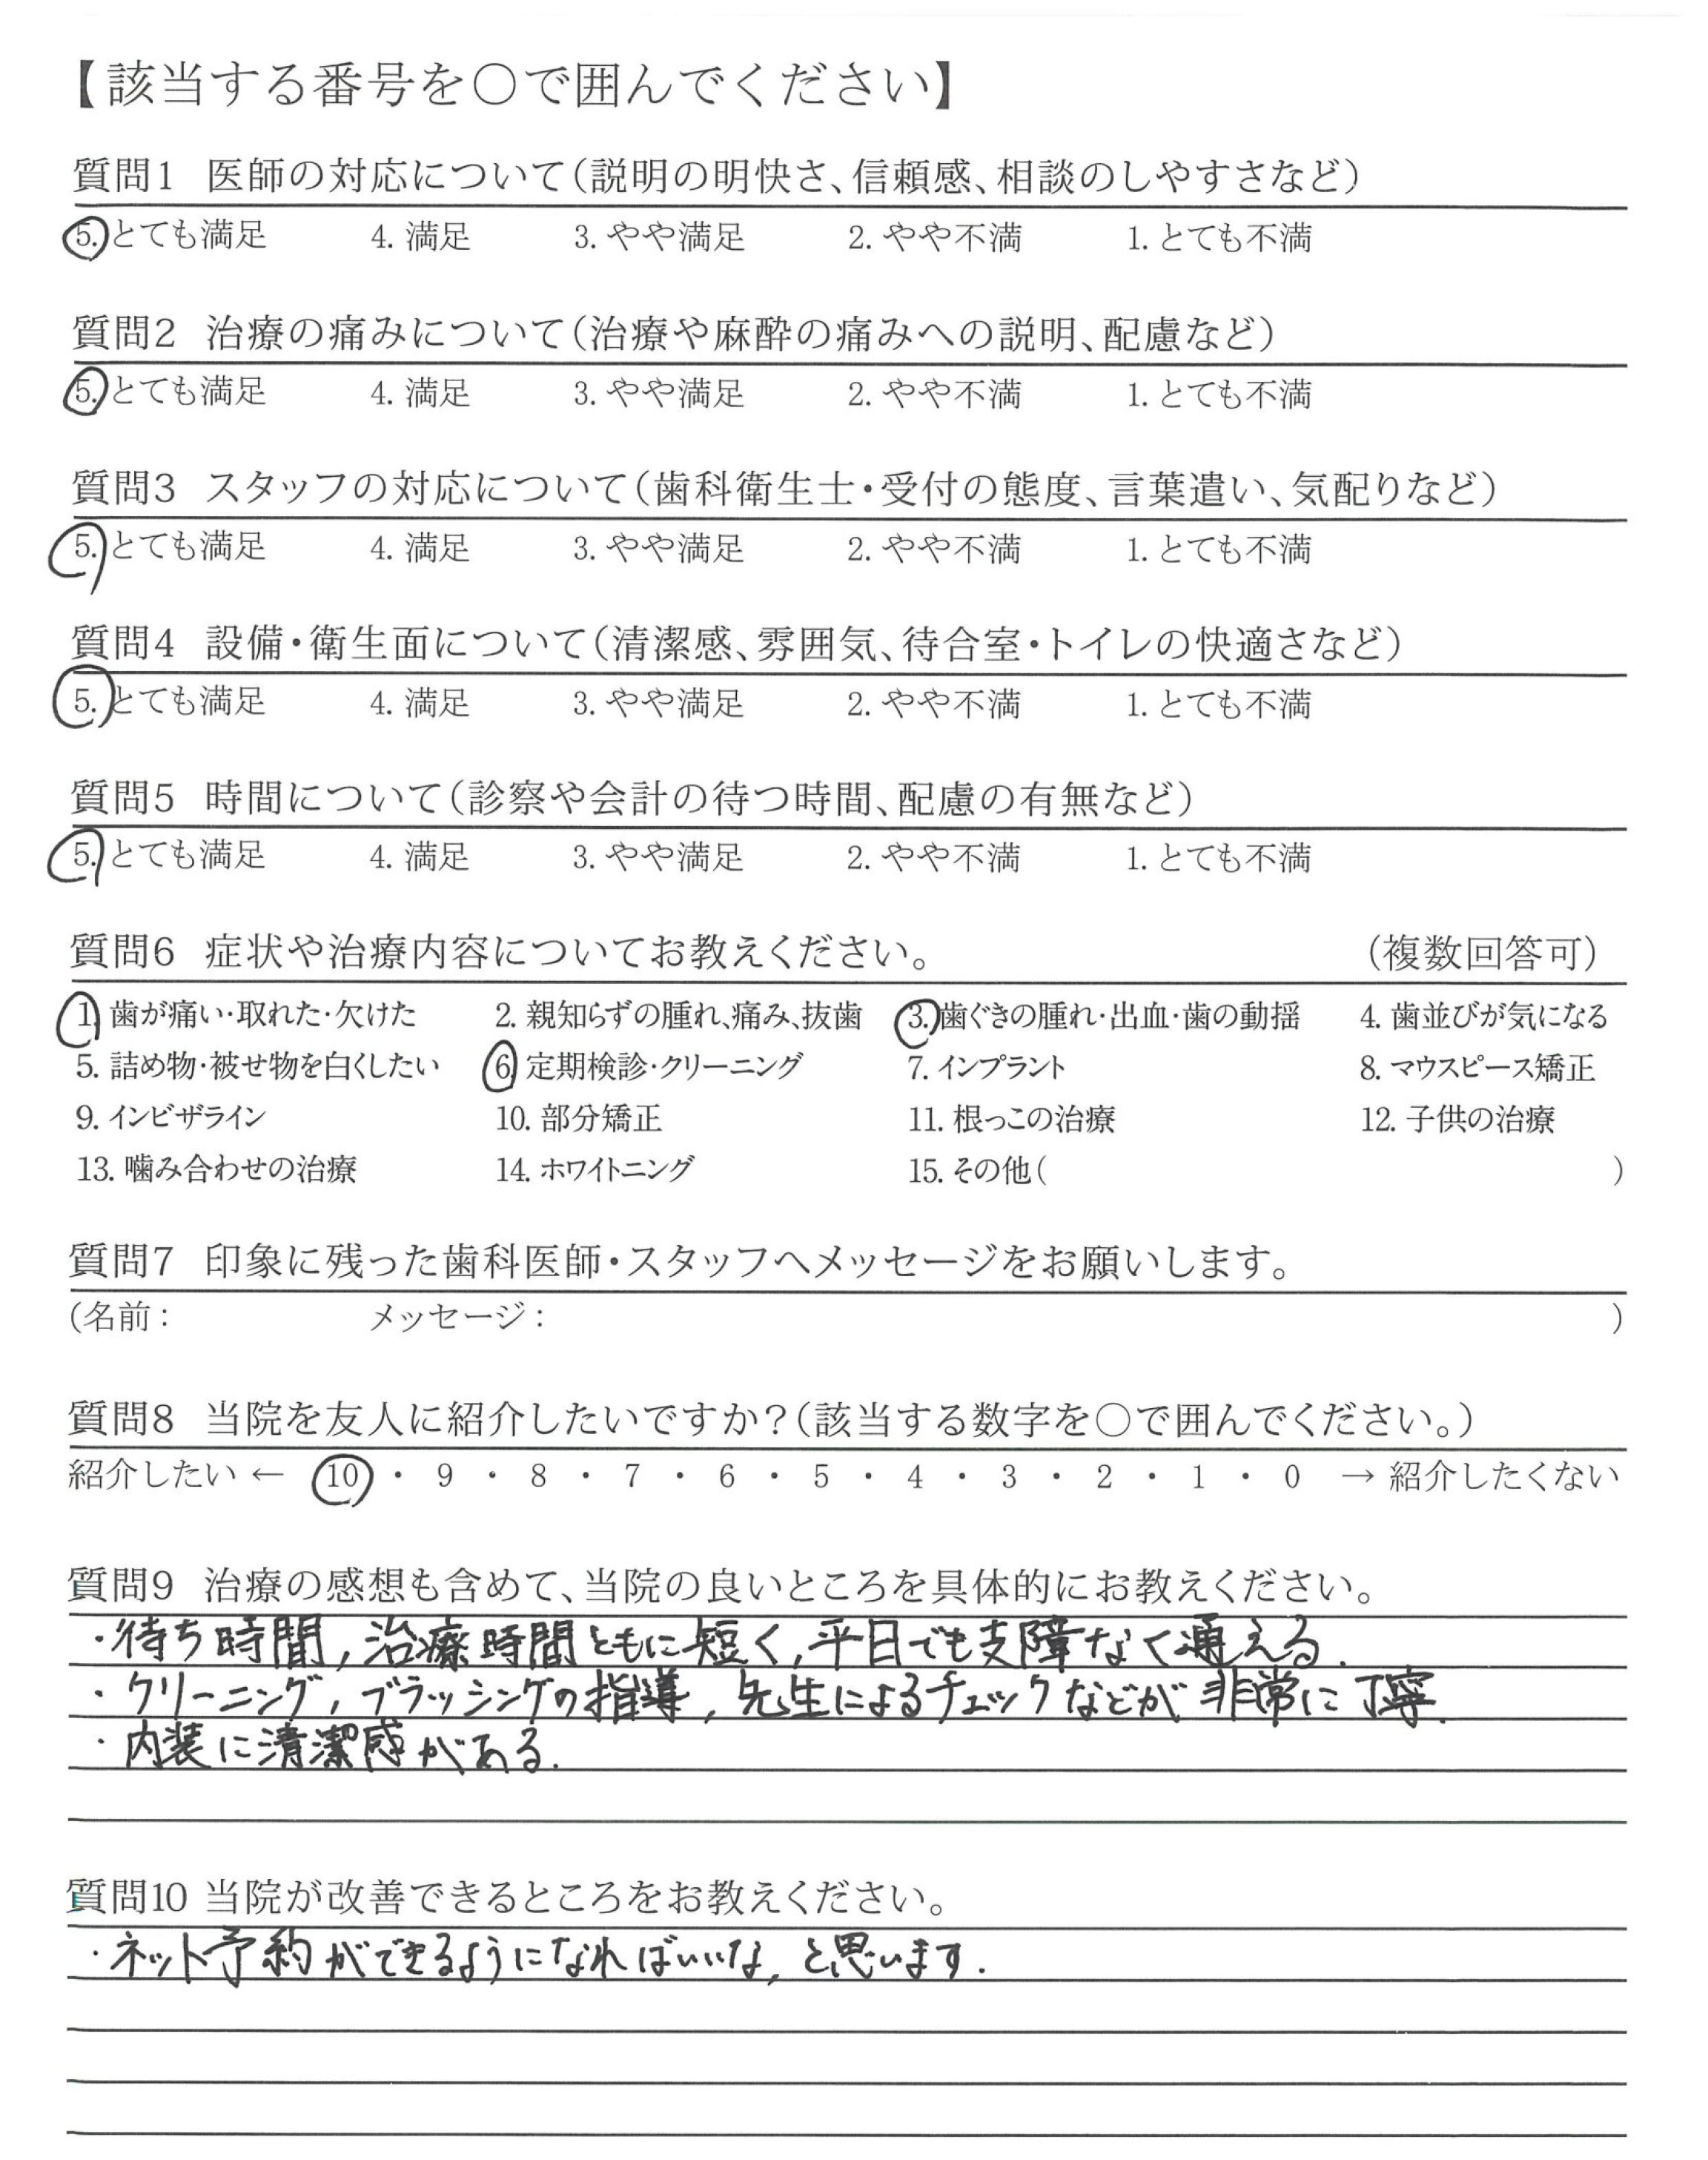 【該当する番号を○で囲んでください】
質問1 医師の対応について(説明の明快さ、信頼感、相談のしやすさなど)
5. とても満足 4. 満足 3. やや満足 2. やや不満 1. とても不満
質問2 治療の痛みについて(治療や麻酔の痛みへの説明、配慮など)
5. とても満足 4. 満足 3. やや満足 2. やや不満 1. とても不満
質問3 スタッフの対応について(歯科衛生士・受付の態度、言葉遣い、気配りなど)
5. とても満足 4. 満足 3. やや満足 2. やや不満 1. とても不満
質問4 設備・衛生面について(清潔感、雰囲気、待合室・トイレの快適さなど)
5. とても満足 4. 満足 3. やや満足 2. やや不満 1. とても不満
質問5 時間について(診察や会計の待つ時間、配慮の有無など)
5. とても満足 4. 満足 3. やや満足 2. やや不満 1. とても不満
質問6 症状や治療内容についてお教えください。 (複数回答可)
1. 歯が痛い・取れた・欠けた 2. 親知らずの腫れ、痛み、抜歯 3. 歯ぐきの腫れ・出血・歯の動揺 4. 歯並びが気になる
5. 詰め物・被せ物を白くしたい 6. 定期検診・クリーニング 7. インプラント 8. マウスピース矯正
9. インビザライン 10. 部分矯正 11. 根っこの治療 12. 子供の治療
13. 噛み合わせの治療 14. ホワイトニング 15. その他( )
質問7 印象に残った歯科医師・スタッフへメッセージをお願いします。
(名前: メッセージ: )
質問8 当院を友人に紹介したいですか?(該当する数字を○で囲んでください。)
紹介したい ← 10 ・ 9 ・ 8 ・ 7 ・ 6 ・ 5 ・ 4 ・ 3 ・ 2 ・ 1 ・ 0 → 紹介したくない
質問9 治療の感想も含めて、当院の良いところを具体的にお教えください。
・待ち時間,治療時間ともに短く,平日でも支障なく通える.
・クリーニング,ブラッシングの指導,先生によるチェックなどが非常に丁寧.
・内装に清潔感がある.
質問10 当院が改善できるところをお教えください。
・ネット予約ができるようになればいいな,と思います.